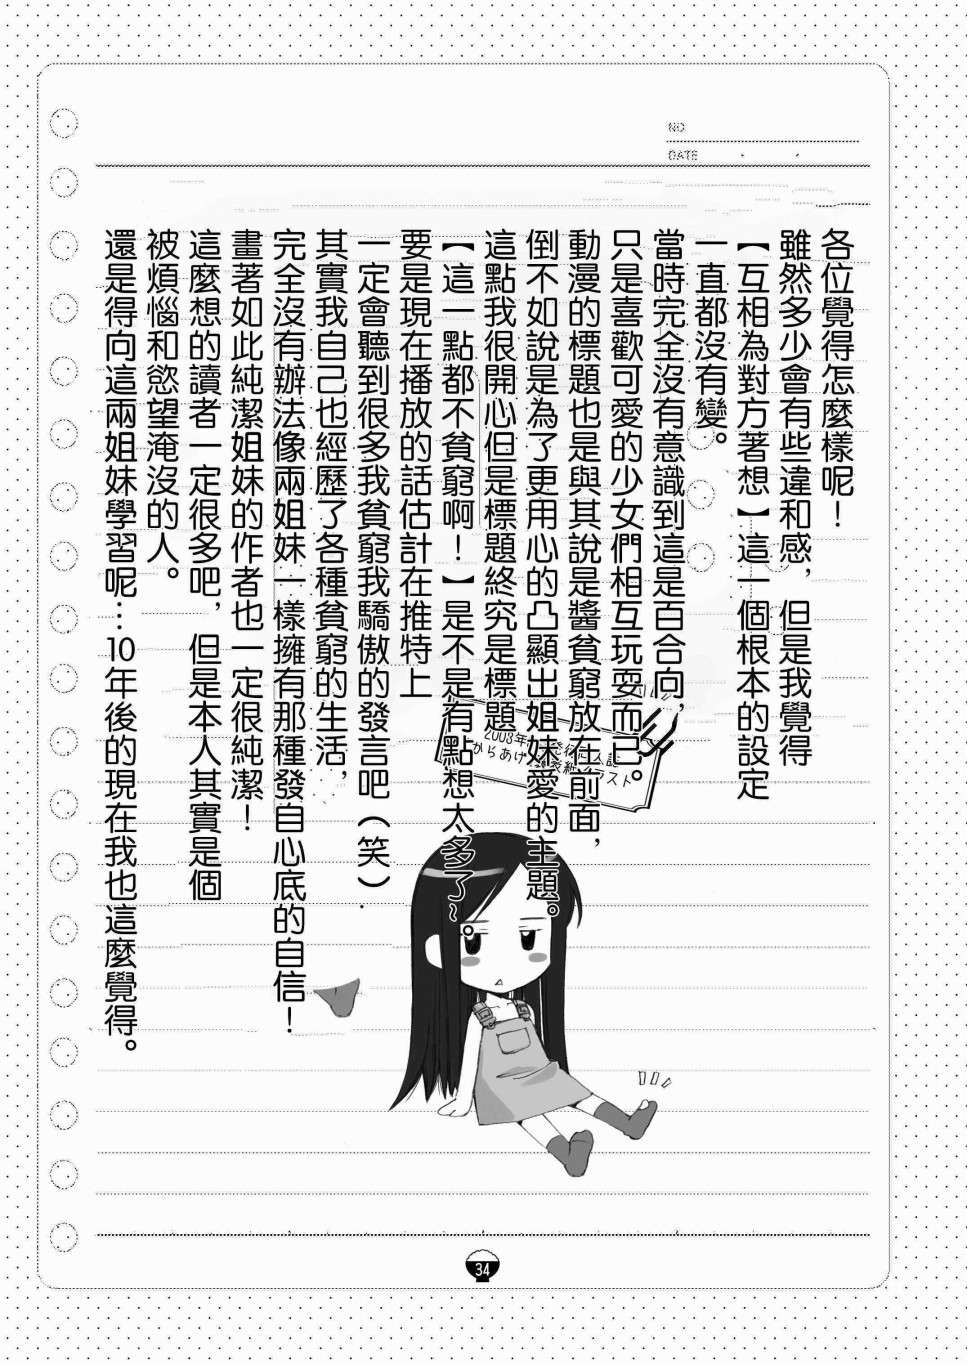 NO.
DATE
各位覺得怎麼樣呢！
雖然多少會有些違和感，但是我覺得
【互相為對方著想】這一個根本的設定
一直都沒有變。
當時完全沒有意識到這是百合向，
只是喜歡可愛的少女們相互玩耍而已。
動漫的標題也是與其說是醬貧窮放在前面，
倒不如說是為了更用心的凸顯出姐妹愛的主題。
這點我很開心但是標題終究是標題
【這一點都不貧窮啊！】是不是有點想太多了~。
要是現在播放的話估計在推特上
一定會聽到很多我貧窮我驕傲的發言吧（笑）.
其實我自己也經歷了各種貧窮的生活，
完全沒有辦法像兩姐妹一樣擁有那種發自心底的自信！
畫著如此純潔姐妹的作者也一定很純潔！
這麼想的讀者一定很多吧，但是本人其實是個
被煩惱和慾望淹沒的人。
還是得向這兩姐妹學習呢…10年後的現在我也這麼覺得。
2003年
からあげ
34